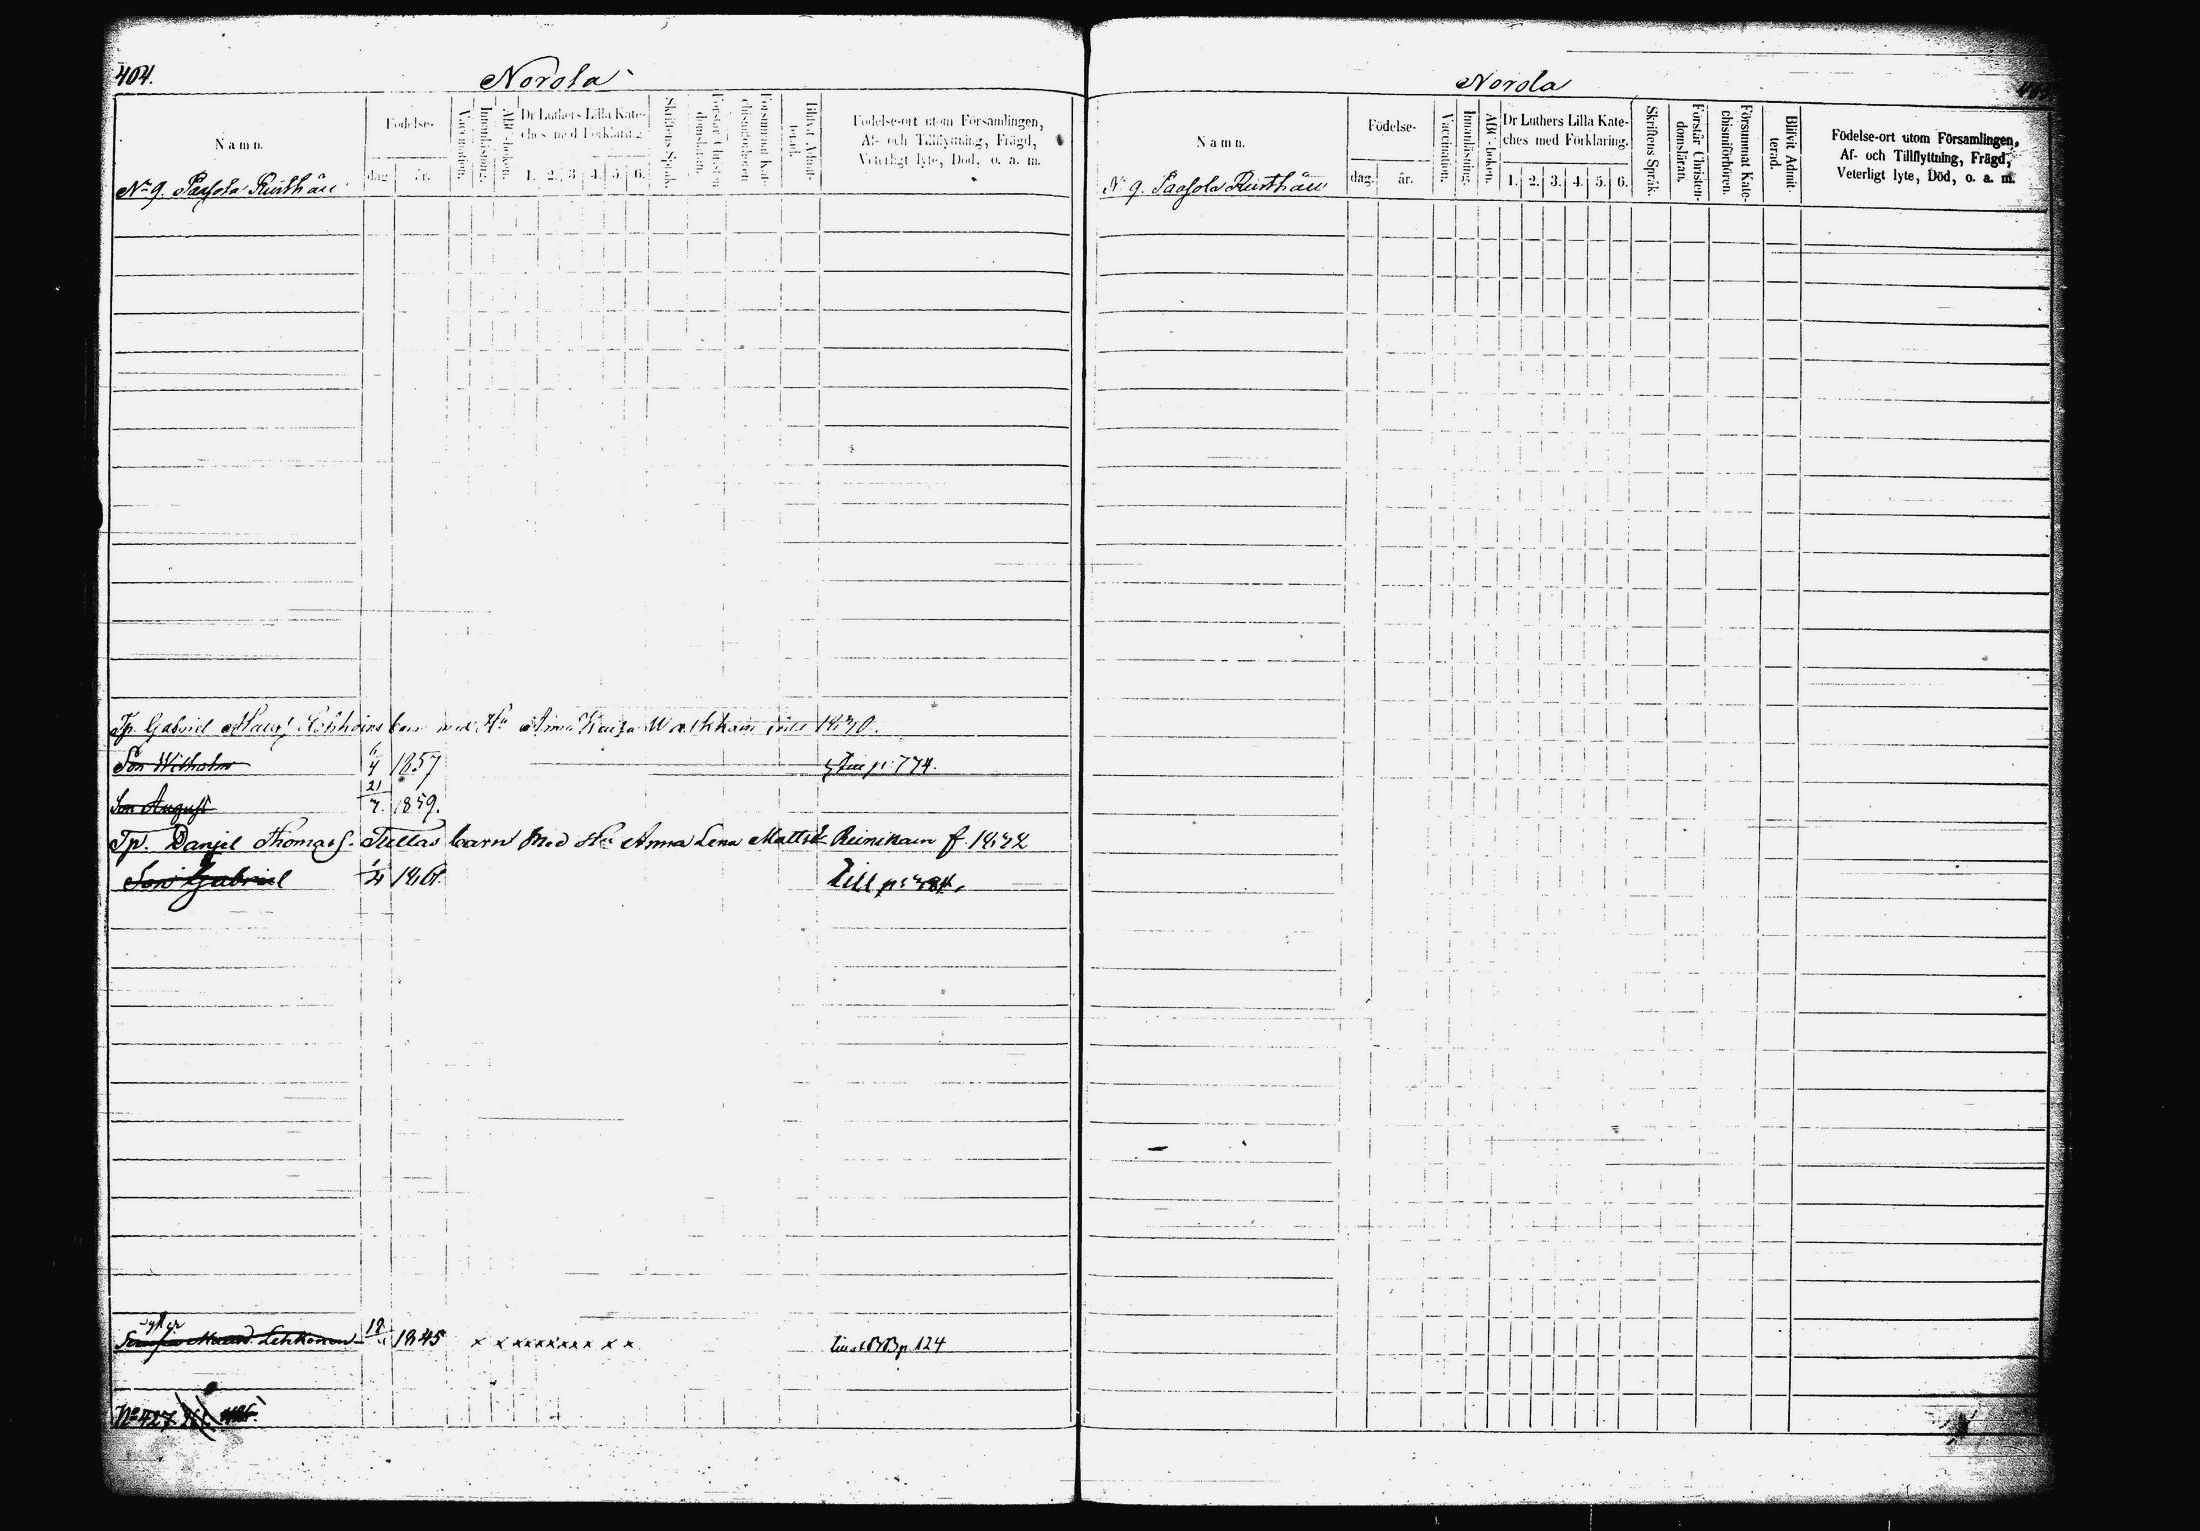 404.
Norola
Namn.
Födelse-
dag.
år.
Vaccination.
Innanläsning.
ABC-boken.
Dr Luthers Lilla Kate-
ches med Förklaring.
1. 2. 3. 4. 5. 6.
Skriftens Språk.
Förstår Christen-
domsläran.
Försummat Kate-
chismiförhören.
Blifvit Admit-
terad.
Födelse-ort utom Församlingen,
Af- och Tillflyttning, Frägd,
Veterligt lyte, Död, o. a. m.
No 9. Paasola Rusthåll
Tp. Gabriel barn med Hu Anna Kaisa
Son Wilhelm 6/4 1857 p. 774.
Son August 21/7. 1859.
Tp. Daniel Thomass. barn med Hu Anna Lena Mattsd. Reinikain f.
Son Gabriel Till p.
Syster
Lehkonen 18 1845 x x x x x x x x x x x p. 124
No 427
Norola
Namn.
Födelse-
dag.
år.
Vaccination.
Innanläsning.
ABC-boken.
Dr Luthers Lilla Kate-
ches med Förklaring.
1. 2. 3. 4. 5. 6.
Skriftens Språk.
Förstår Christen-
domsläran.
Försummat Kate-
chismiförhören.
Blifvit Admit-
terad.
Födelse-ort utom Församlingen,
Af- och Tillflyttning, Frägd,
Veterligt lyte, Död, o. a. m.
No 9. Paasola Rusthåll